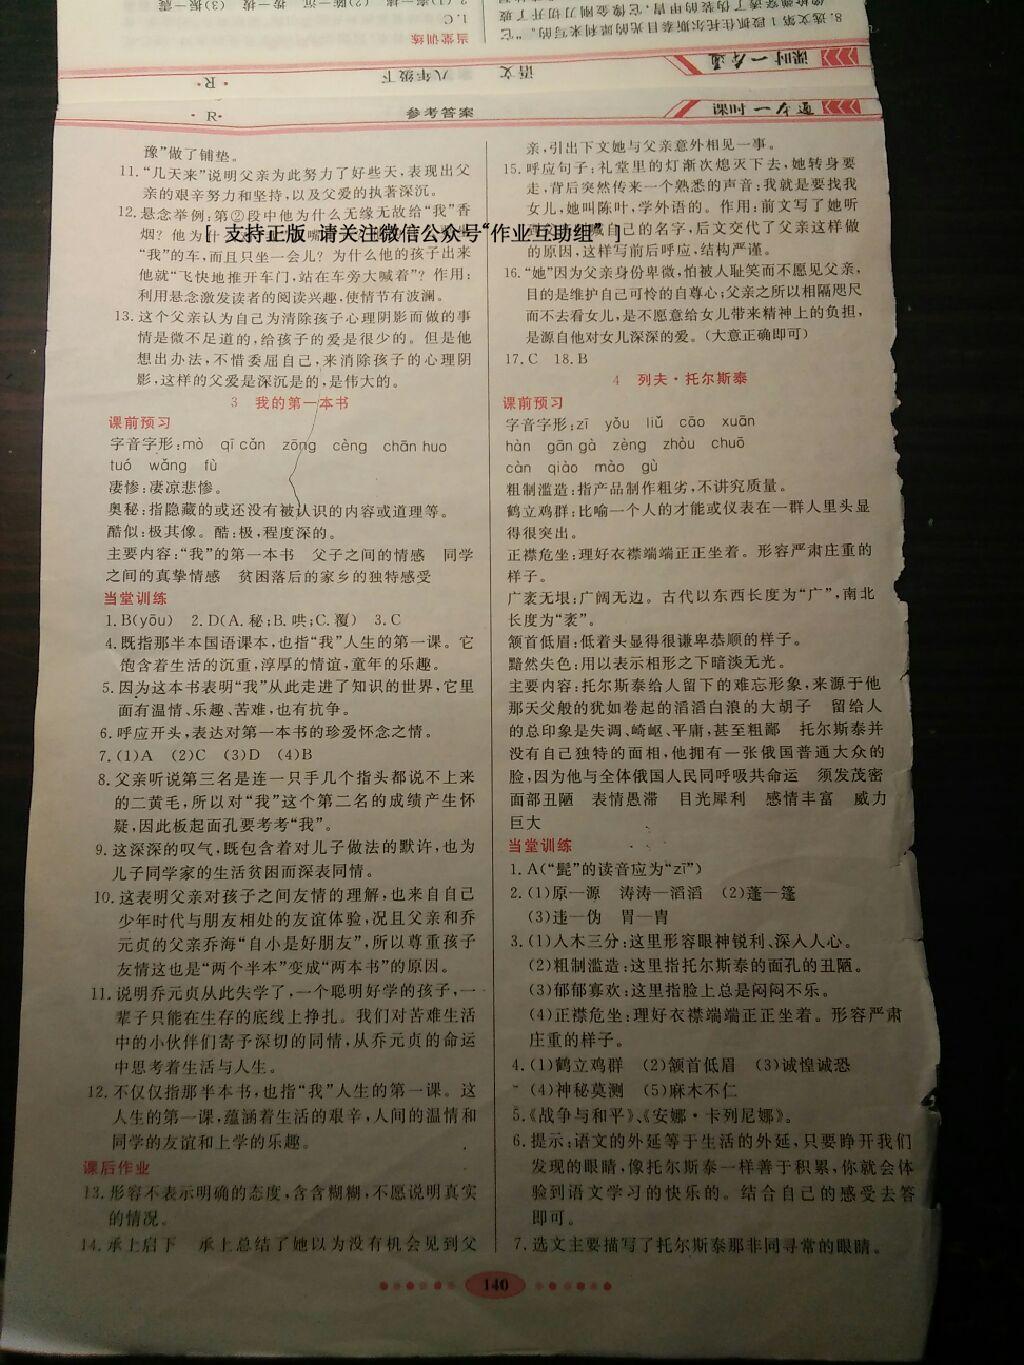 8.选文第1段抓住托尔斯泰目光的犀利来写的。“它
像枪弹穿透了伪装的甲胄,它像金刚刀切开了玻
当堂训练
1.C
课时一本通
语文 八年级下
·R·
课时一本通
参考答案
·R·
豫”做了铺垫。
11.“几天来”说明父亲为此努力了好些天,表现出父
亲的艰辛努力和坚持,以及父爱的执著深沉。
12.悬念举例:第②段中他为什么无缘无故给“我”香
烟?他为什么
“我”的车,而且只坐一会儿?为什么他的孩子出来
他就“飞快地推开车门,站在车旁大喊着”?作用:
利用悬念激发读者的阅读兴趣,使情节有波澜。
13.这个父亲认为自己为清除孩子心理阴影而做的事
情是微不足道的,给孩子的爱是很少的。但是他
想出办法,不惜委屈自己,来消除孩子的心理阴
影,这样的父爱是深沉是的,是伟大的。
3 我的第一本书
课前预习
字音字形:mò qī cǎn zōng cèng chān huo
tuó wǎng fù
凄惨:凄凉悲惨。
奥秘:指隐藏的或还没有被认识的内容或道理等。
酷似:极其像。酷:极,程度深的。
主要内容:“我”的第一本书 父子之间的情感 同学
之间的真挚情感 贫困落后的家乡的独特感受
当堂训练
1.B(yōu) 2.D(A.秘;B.哄;C.覆) 3.C
4.既指那半本国语课本,也指“我”人生的第一课。它
饱含着生活的沉重,淳厚的情谊,童年的乐趣。
5.因为这本书表明“我”从此走进了知识的世界,它里
面有温情、乐趣、苦难,也有抗争。
6.呼应开头,表达对第一本书的珍爱怀念之情。
7.(1)A (2)C (3)D (4)B
8.父亲听说第三名是连一只手几个指头都说不上来
的二黄毛,所以对“我”这个第二名的成绩产生怀
疑,因此板起面孔要考考“我”。
9.这深深的叹气,既包含着对儿子做法的默许,也为
儿子同学家的生活贫困而深表同情。
10.这表明父亲对孩子之间友情的理解,也来自自己
少年时代与朋友相处的友谊体验,况且父亲和乔
元贞的父亲乔海“自小是好朋友”,所以尊重孩子
友情这也是“两个半本”变成“两本书”的原因。
11.说明乔元贞从此失学了,一个聪明好学的孩子,一
辈子只能在生存的底线上挣扎。我们对苦难生活
中的小伙伴们寄予深切的同情,从乔元贞的命运
中思考着生活与人生。
12.不仅仅指那半本书,也指“我”人生的第一课。这
人生的第一课,蕴涵着生活的艰辛,人间的温情和
同学的友谊和上学的乐趣。
课后作业
13.形容不表示明确的态度,含含糊糊,不愿说明真实
的情况。
14.承上启下 承上总结了她以为没有机会见到父
亲,引出下文她与父亲意外相见一事。
15.呼应句子:礼堂里的灯渐次熄灭下去,她转身要
走,背后突然传来一个熟悉的声音:我就是要找我
女儿,她叫陈叶,学外语的。作用:前文写了她听
自己的名字,后文交代了父亲这样做
的原因,这样写前后呼应,结构严谨。
16.“她”因为父亲身份卑微,怕被人耻笑而不愿见父亲,
目的是维护自己可怜的自尊心;父亲之所以相隔咫尺
而不去看女儿,是不愿意给女儿带来精神上的负担,
是源自他对女儿深深的爱。(大意正确即可)
17.C 18.B
4 列夫·托尔斯泰
课前预习
字音字形:zī yǒu liǔ cāo xuān
hàn gān gà zèng zhòu chuō
càn qiào mào gù
粗制滥造:指产品制作粗劣,不讲究质量。
鹤立鸡群:比喻一个人的才能或仪表在一群人里头显
得很突出。
正襟危坐:理好衣襟端端正正坐着。形容严肃庄重的
样子。
广袤无垠:广阔无边。古代以东西长度为“广”,南北
长度为“袤”。
颔首低眉:低着头显得很谦卑恭顺的样子。
黯然失色:用以表示相形之下暗淡无光。
主要内容:托尔斯泰给人留下的难忘形象,来源于他
那天父般的犹如卷起的滔滔白浪的大胡子 留给人
的总印象是失调、崎岖、平庸,甚至粗鄙 托尔斯泰并
没有自己独特的面相,他拥有一张俄国普通大众的
脸,因为他与全体俄国人民同呼吸共命运 须发茂密
面部丑陋 表情愚滞 目光犀利 感情丰富 威力
巨大
当堂训练
1.A(“髭”的读音应为“zī”)
2.(1)原—源 涛涛—滔滔 (2)蓬—篷
(3)违—伪 胃—胄
3.(1)入木三分:这里形容眼神锐利、深入人心。
(2)粗制滥造:这里指托尔斯泰的面孔的丑陋。
(3)郁郁寡欢:这里指脸上总是闷闷不乐。
(4)正襟危坐:理好衣襟端端正正坐着。形容严肃
庄重的样子。
4.(1)鹤立鸡群 (2)颔首低眉 (3)诚惶诚恐
(4)神秘莫测 (5)麻木不仁
5.《战争与和平》、《安娜·卡列尼娜》。
6.提示:语文的外延等于生活的外延,只要睁开我们
发现的眼睛,像托尔斯泰一样善于积累,你就会体
验到语文学习的快乐的。结合自己的感受去答
即可。
7.选文主要描写了托尔斯泰那非同寻常的眼睛。
[ 支持正版 请关注微信公众号“作业互助组” ]
140